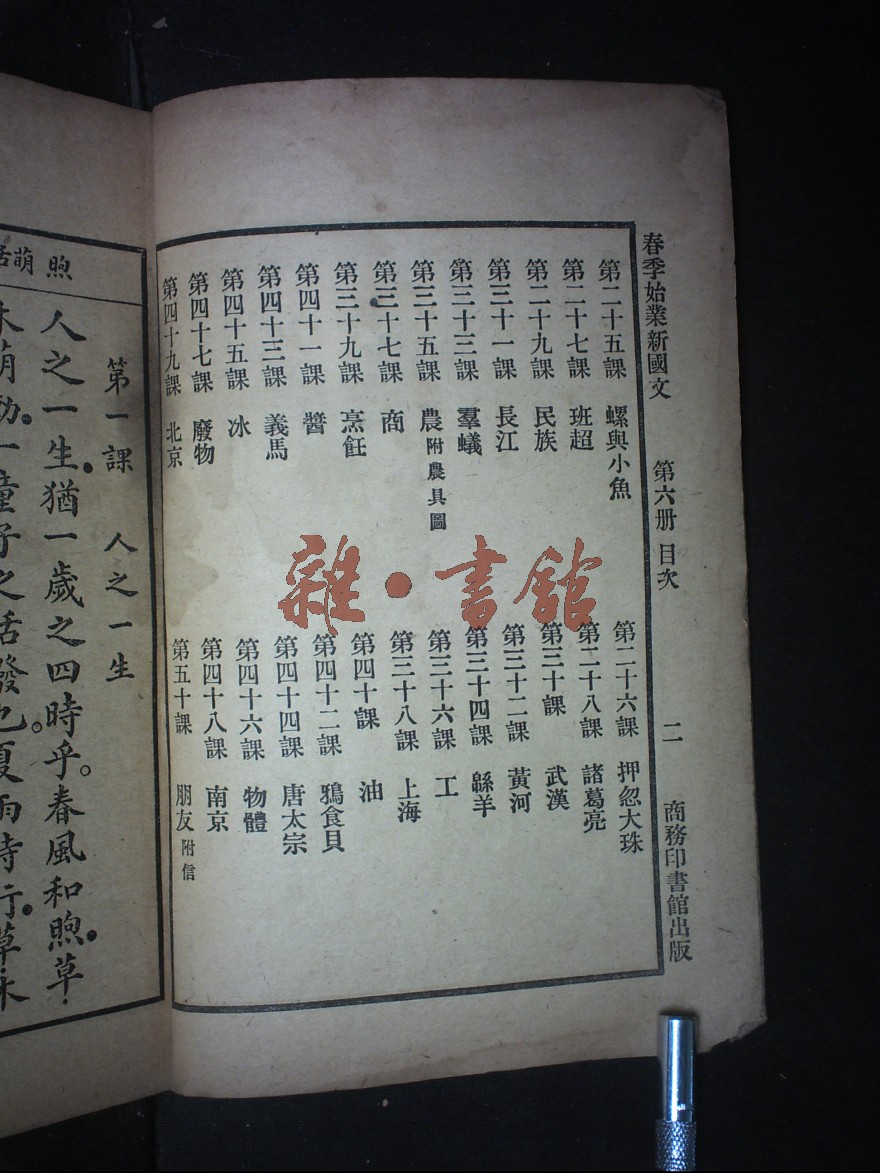 春季始業新國文 第六册 目次 二 商務印書館出版
第二十五課 螺與小魚
第二十六課 押忽大珠
第二十七課 班超
第二十八課 諸葛亮
第二十九課 民族
第三十課 武漢
第三十一課 長江
第三十二課 黃河
第三十三課 羣蟻
第三十四課 緜羊
第三十五課 農附農具圖
第三十六課 工
第三十七課 商
第三十八課 上海
第三十九課 烹飪
第四十課 油
第四十一課 醬
第四十二課 鴉食貝
第四十三課 義馬
第四十四課 唐太宗
第四十五課 冰
第四十六課 物體
第四十七課 廢物
第四十八課 南京
第四十九課 北京
第五十課 朋友附信
雜·書館
煦 萌 活
第一課 人之一生
人之一生猶一歲之四時乎。春風和煦草木
木萌動一童子之活發也。夏雨時行草木